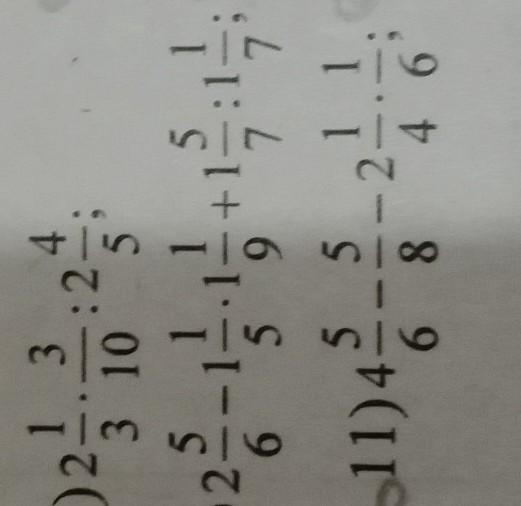 ) 2 1/3 · 3/10 : 2 4/5;
2 5/6 − 1 1/5 · 1 1/9 + 1 5/7 : 1 1/7;
11) 4 5/6 − 5/8 − 2 1/4 · 1/6;